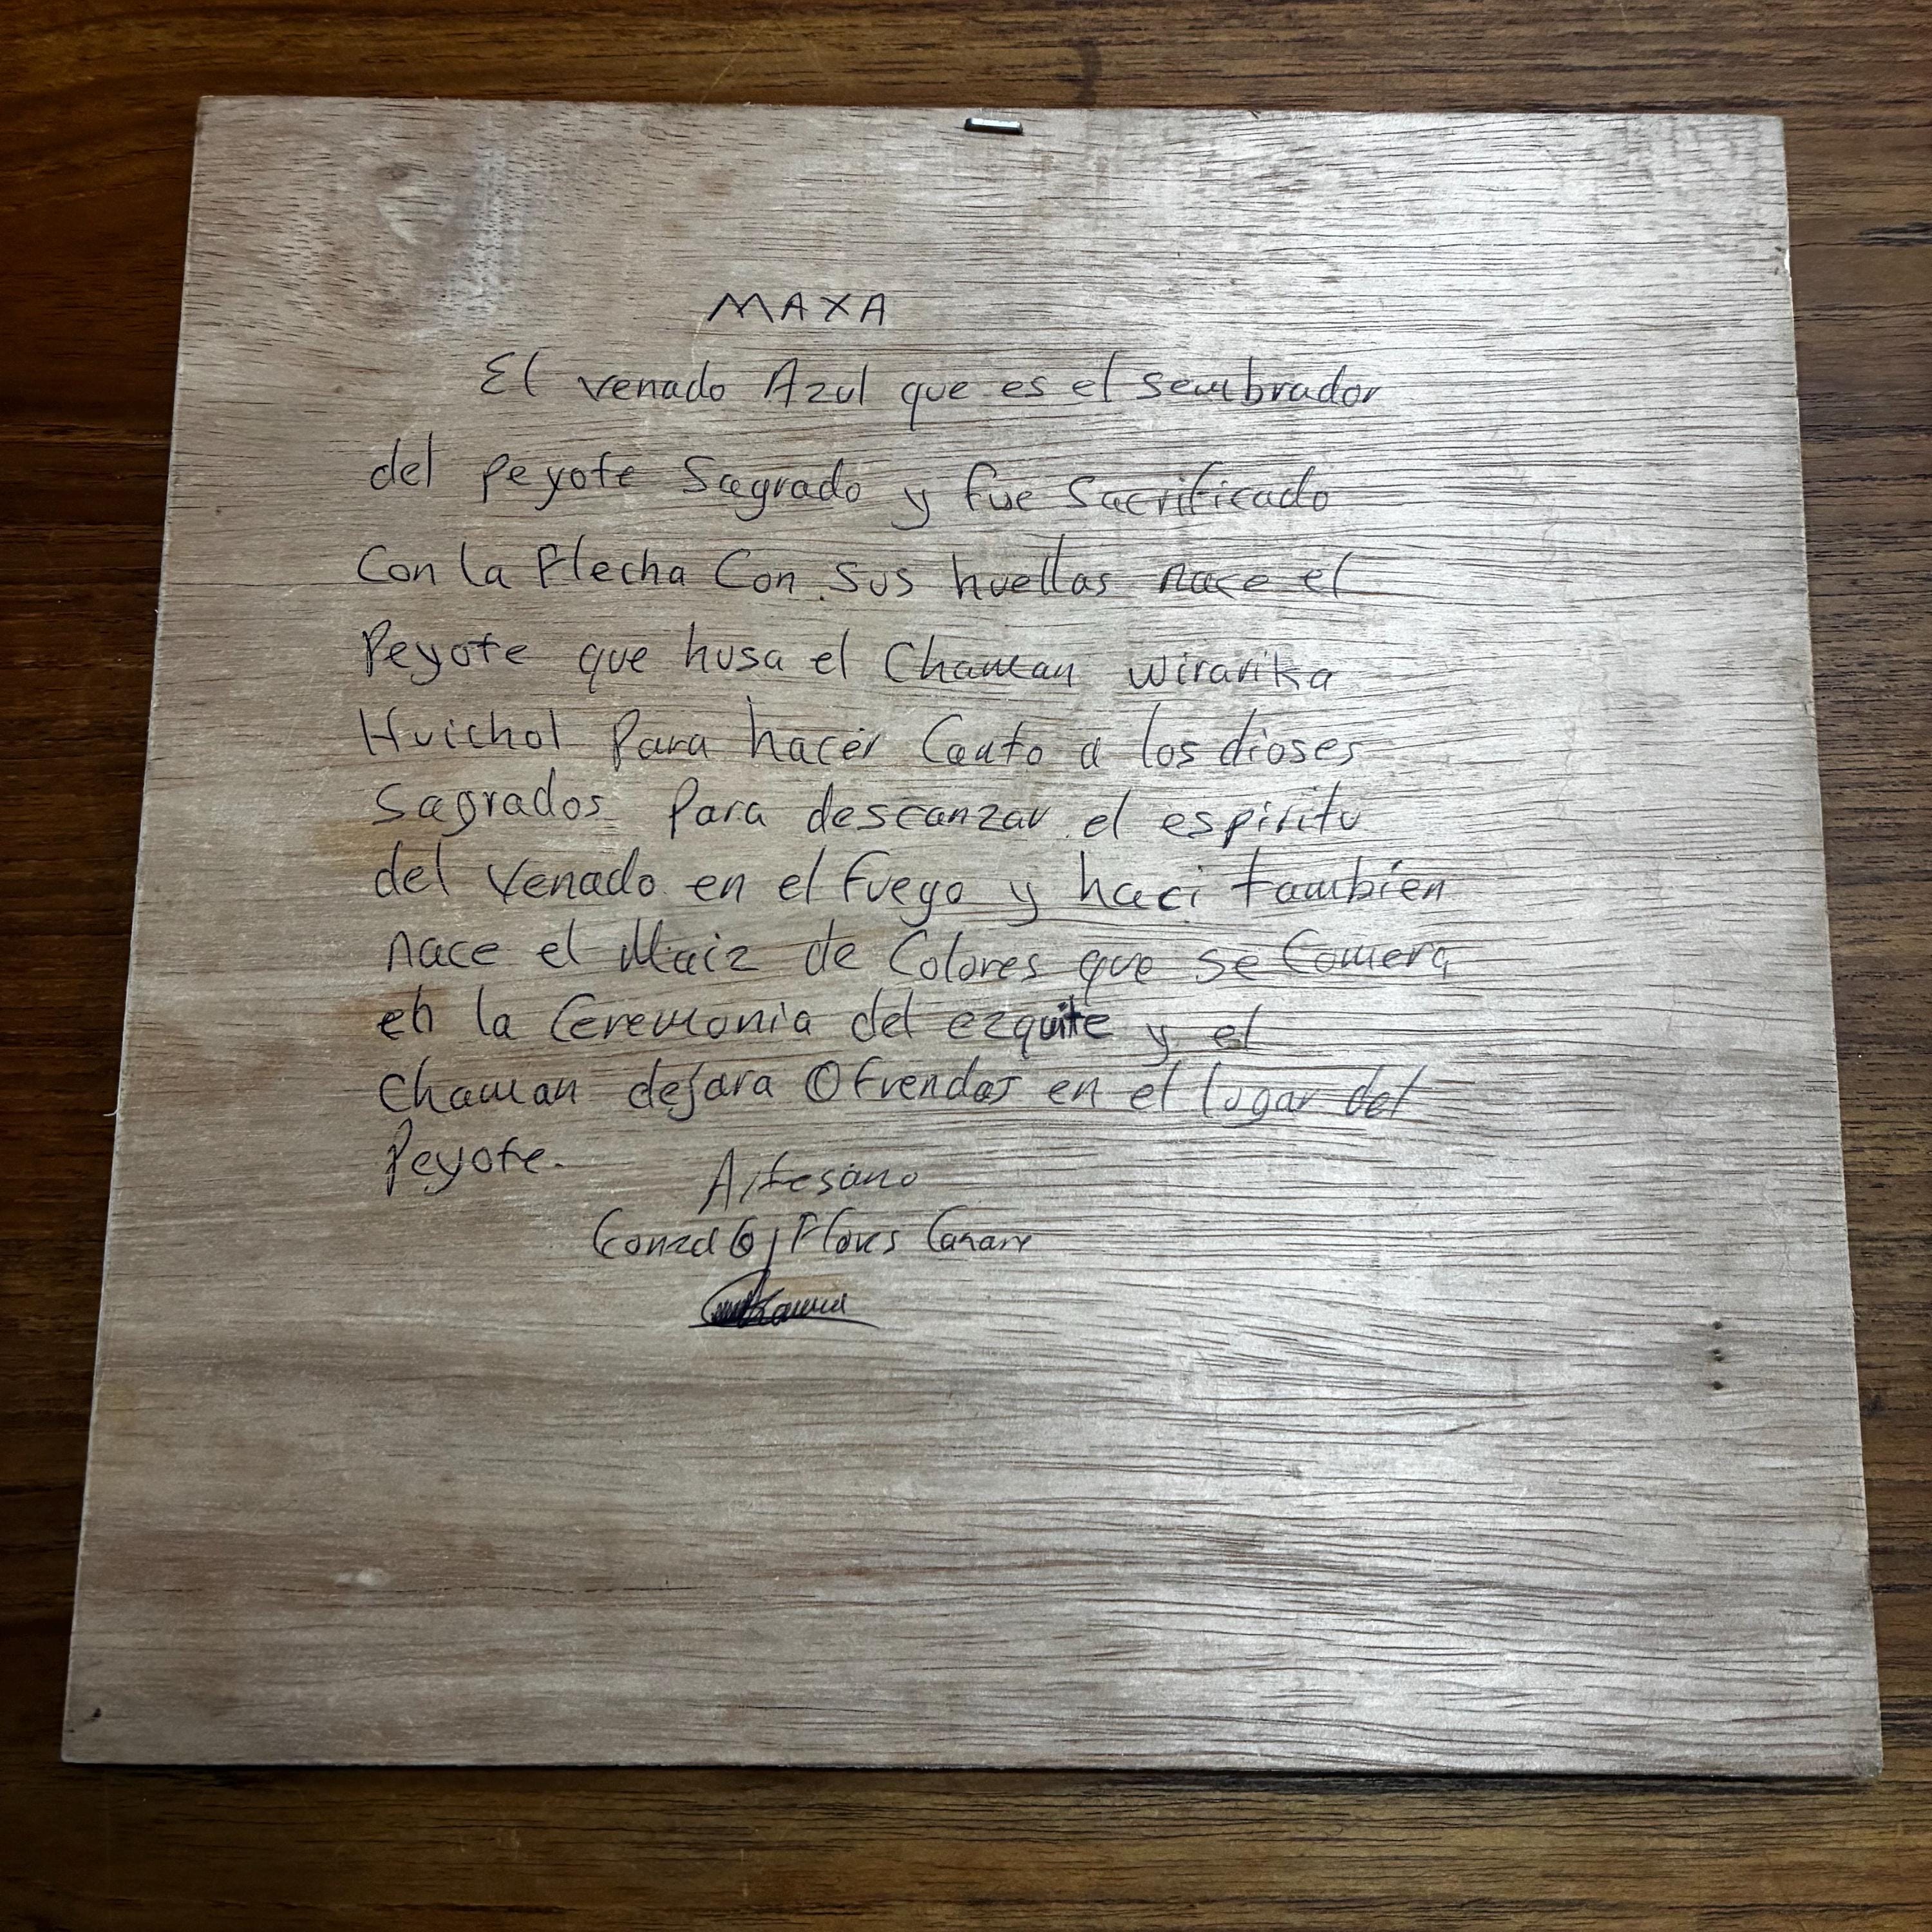 MAXA
El venado Azul que es el sembrador
del peyote Sagrado y fue Sacrificado
Con la Flecha Con sus huellas nace el
Peyote que husa el Chaman wirarika
Huichol Para hacer Canto a los dioses
Sagrados Para descanzar el espiritu
del Venado en el fuego y haci tambien
nace el Maiz de Colores que se Comera
en la Ceremonia del ezquite y el
Chaman dejara Ofrendas en el lugar del
Peyote.
Artesano
Flores